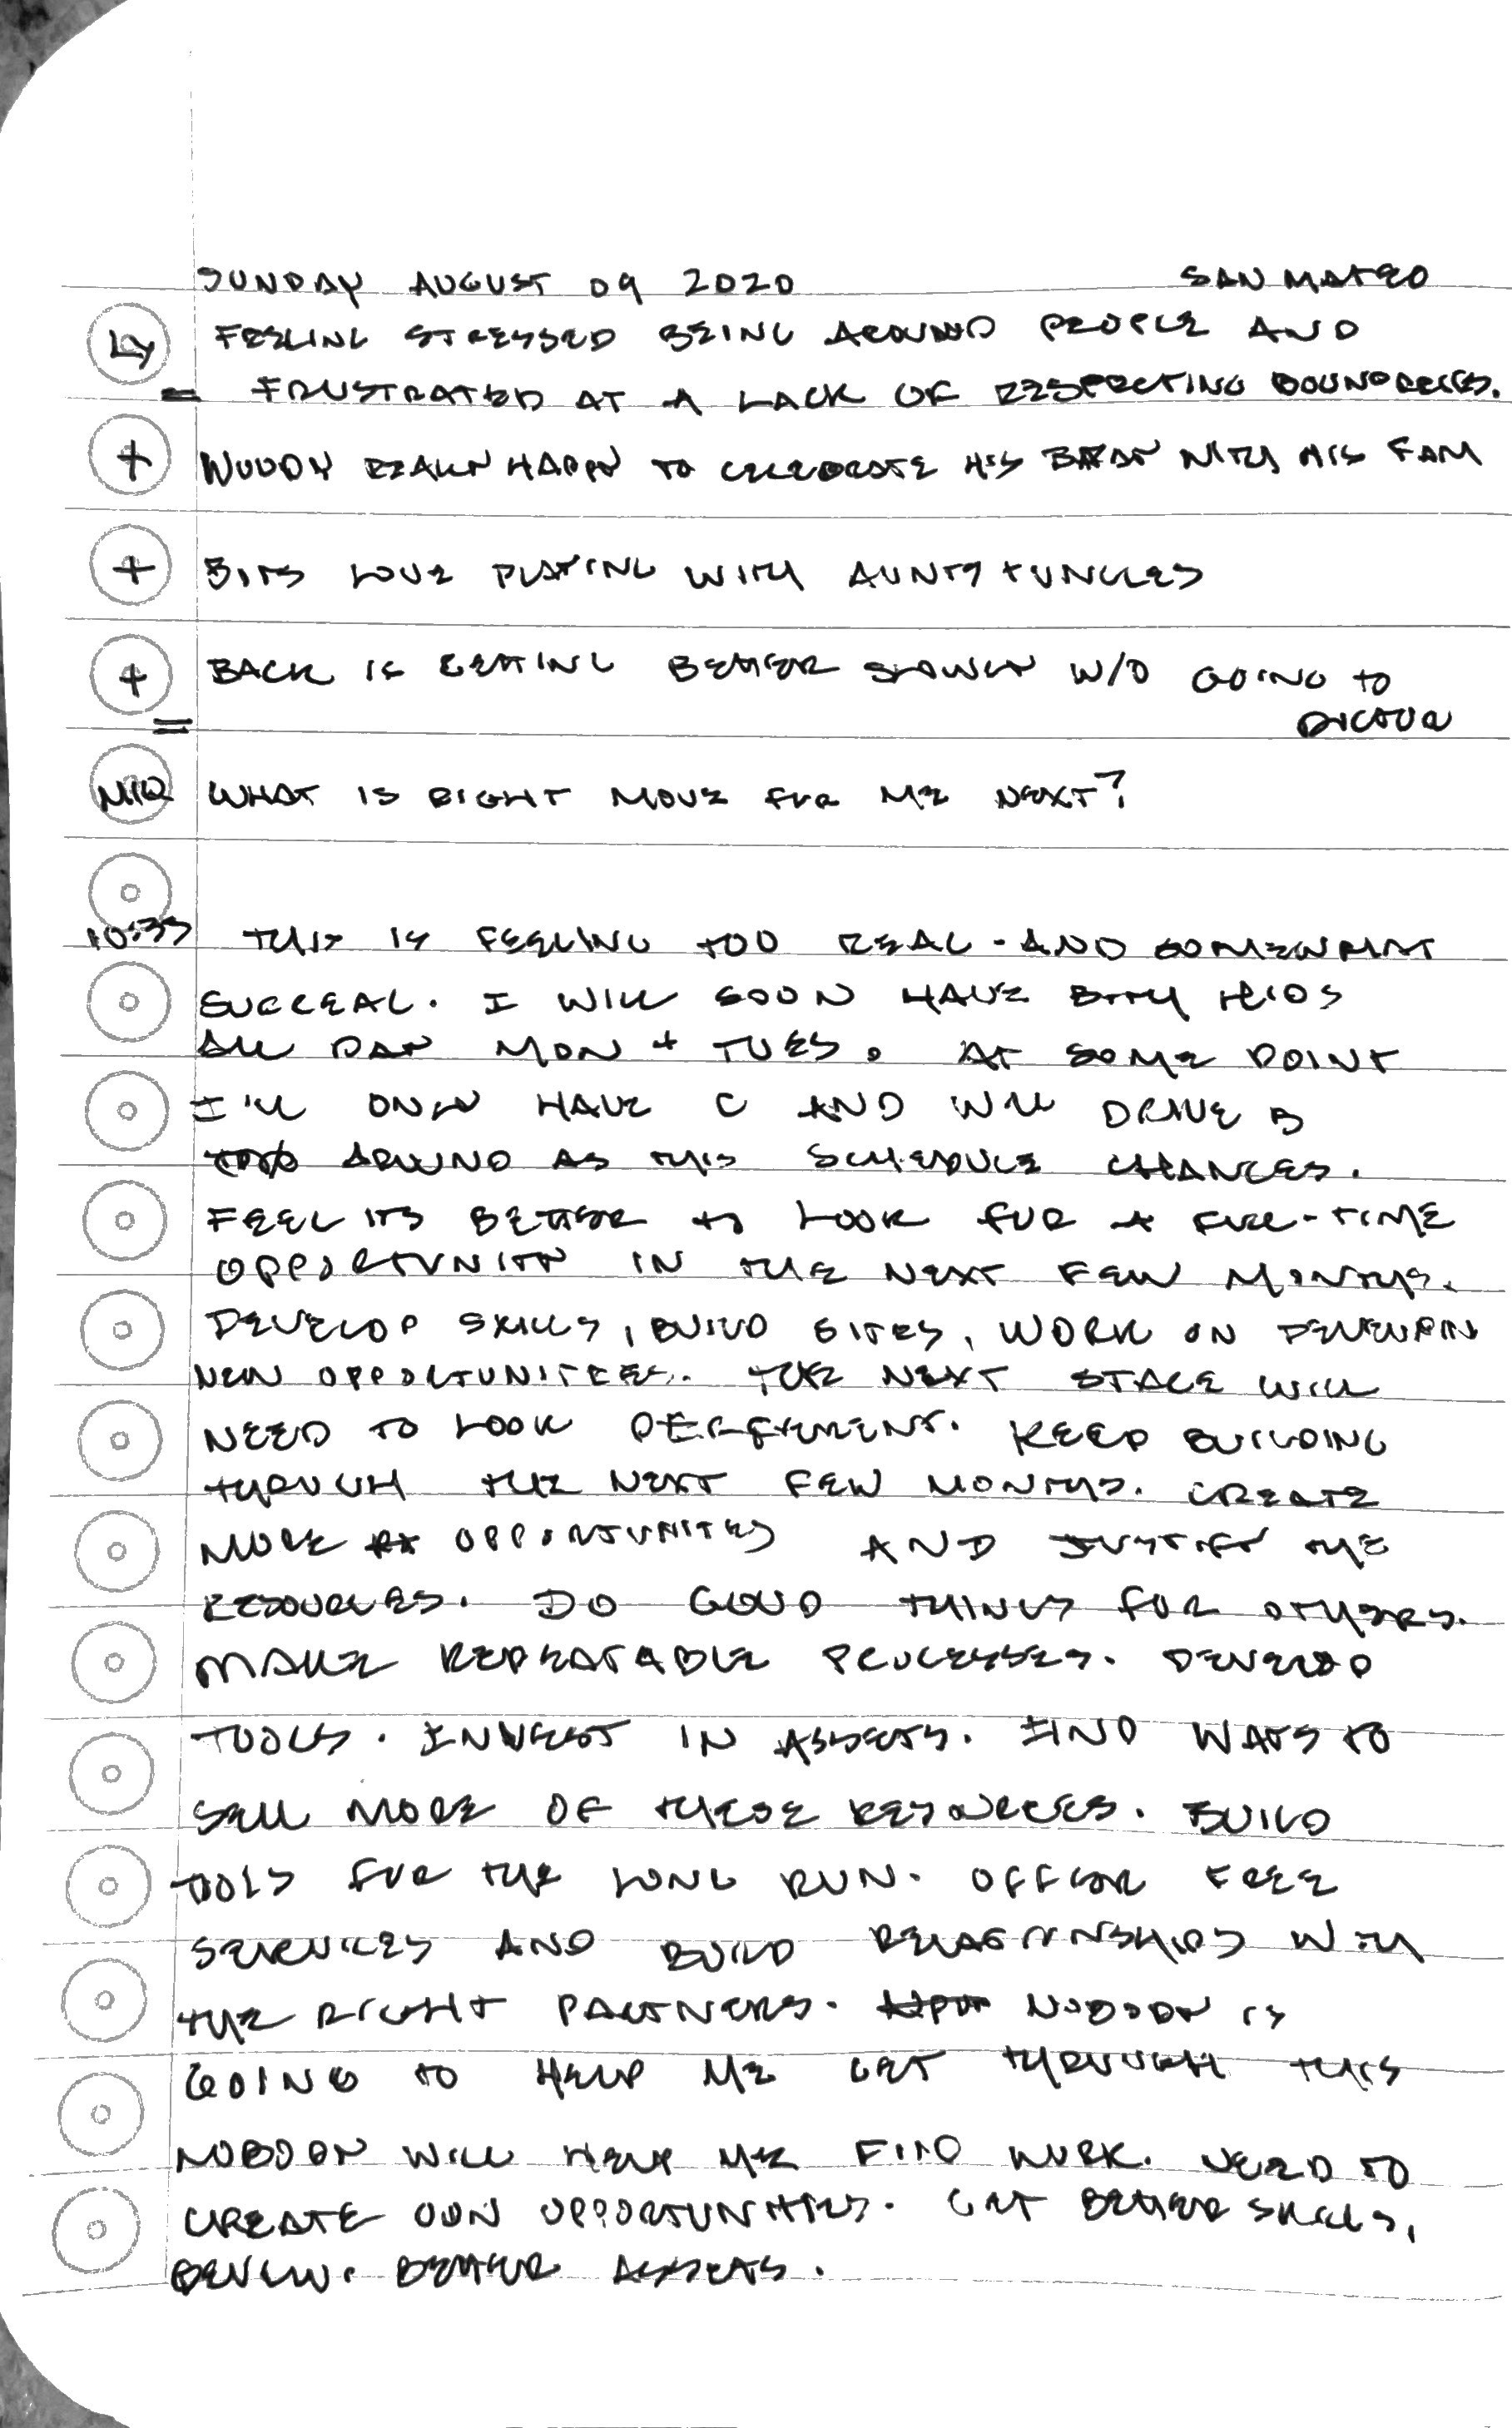 SUNDAY AUGUST 09 2020 SAN MATEO
LY FEELING STRESSED BEING AROUND PEOPLE AND
= FRUSTRATED AT A LACK OF RESPECTING BOUNDRIES.
+ WOODY REALLY HAPPY TO CELEBRATE HIS BDAY WITH HIS FAM
+ BOYS LOVE PLAYING WITH AUNTS + UNCLES
+ BACK IS GETTING BETTER SLOWLY W/O GOING TO
= DOCTOR
MIQ WHAT IS RIGHT MOVE FOR ME NEXT?
10:35 THIS IS FEELING TOO REAL - AND SOMEWHAT
SURREAL. I WILL SOON HAVE BOTH KIDS
ALL DAY MON + TUES. AT SOME POINT
I'LL ONLY HAVE C AND WILL DRIVE B
AROUND AS THIS SCHEDULE CHANGES.
FEEL ITS BETTER TO LOOK FOR A FULL-TIME
OPPORTUNITY IN THE NEXT FEW MONTHS.
DEVELOP SKILLS, BUILD SITES, WORK ON DEVELOPIN
NEW OPPORTUNITIES. THE NEXT STAGE WILL
NEED TO LOOK DIFFERENT. KEEP BUILDING
THROUGH THE NEXT FEW MONTHS. CREATE
MORE OPPORTUNITIES AND JUSTIFY THE
RESOURCES. DO GOOD THINGS FOR OTHERS.
MAKE REPEATABLE PROCESSES. DEVELOP
TOOLS. INVEST IN ASSETS. FIND WAYS TO
SELL MORE OF THESE RESOURCES. BUILD
TOOLS FOR THE LONG RUN. OFFER FREE
SERVICES AND BUILD RELATIONSHIPS WITH
THE RIGHT PARTNERS. NOBODY IS
GOING TO HELP ME GET THROUGH THIS
NOBODY WILL HELP ME FIND WORK. NEED TO
CREATE OWN OPPORTUNITIES. GET BETTER SKILLS,
BETTER ASSETS.